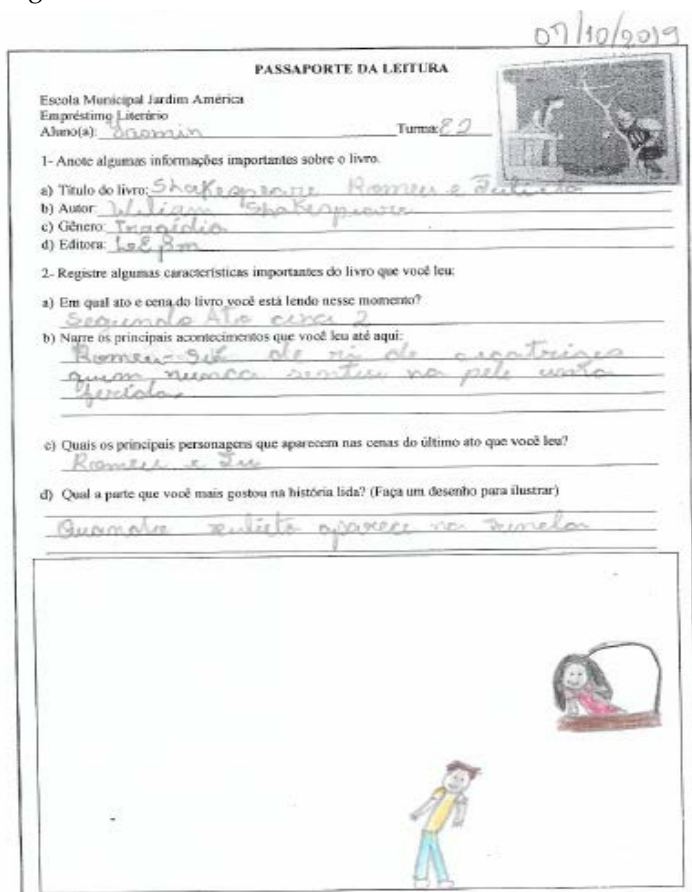 07/10/2019
PASSAPORTE DA LEITURA
Escola Municipal Jardim América
Empréstimo Literário
Aluno(a): Yasmin Turma: E2
1- Anote algumas informações importantes sobre o livro.
a) Título do livro: Shakespeare Romeu e Julieta
b) Autor: Wiliam Shakespeare
c) Gênero: Tragédia
d) Editora: L&Pm
2- Registre algumas características importantes do livro que você leu:
a) Em qual ato e cena do livro você está lendo nesse momento?
Segundo Ato cena 2
b) Narre os principais acontecimentos que você leu até aqui:
Romeu- Só de ri de cicatrizes
quem nunca sentiu na pele uma
ferida
c) Quais os principais personagens que aparecem nas cenas do último ato que você leu?
Romeu e Ju
d) Qual a parte que você mais gostou na história lida? (Faça um desenho para ilustrar)
Quando Julieta aparece na Janela